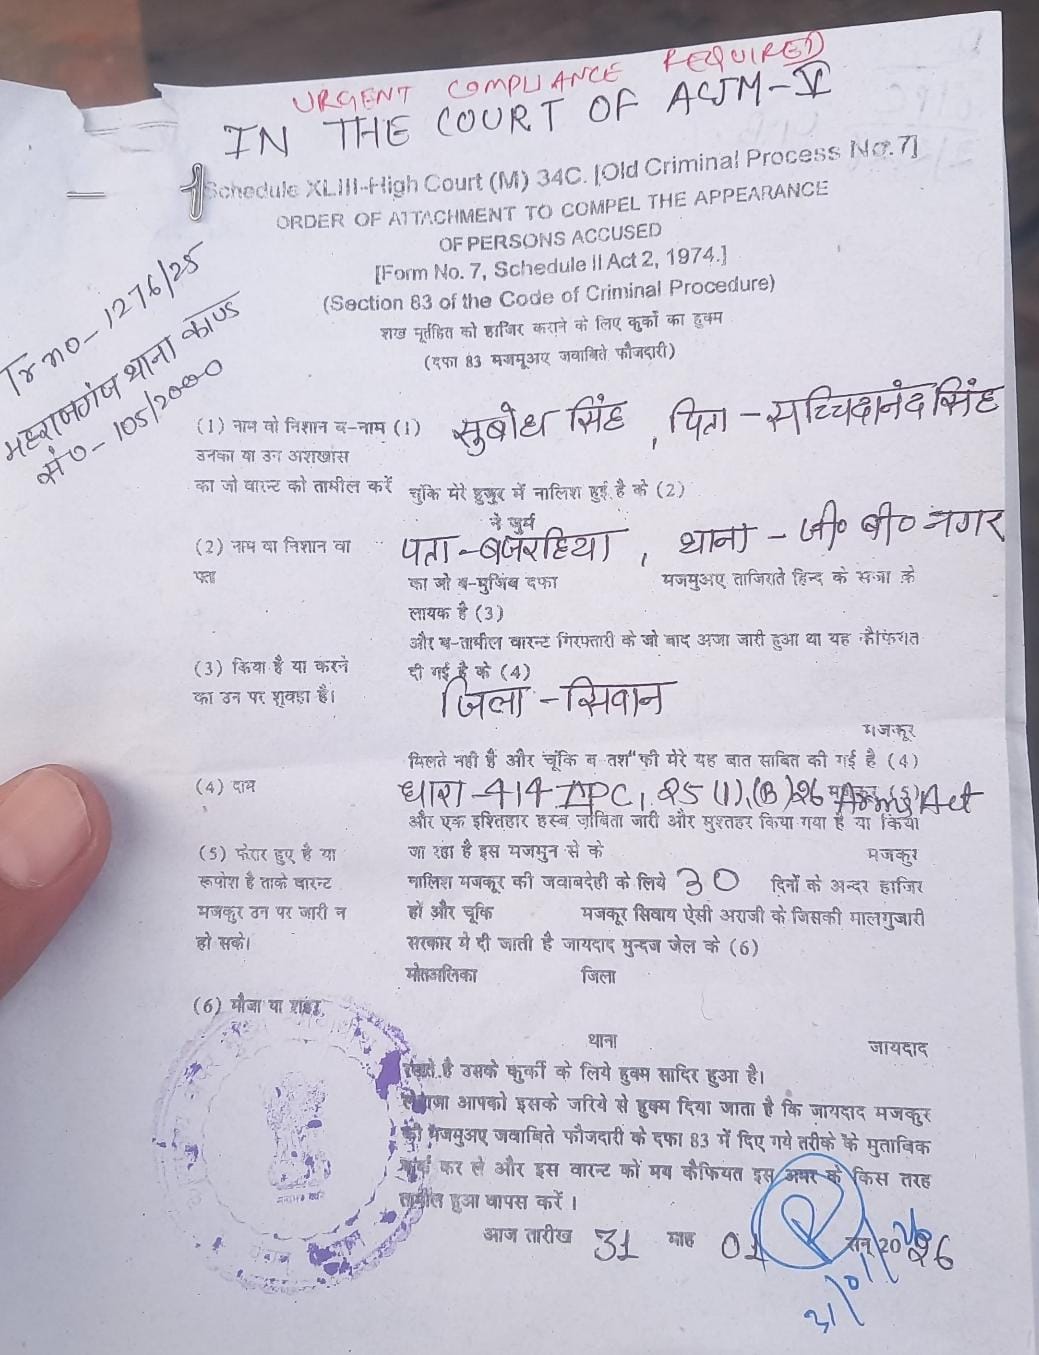 URGENT COMPLIANCE REQUIRED
IN THE COURT OF ACJM-V
Schedule XLIII-High Court (M) 34C. [Old Criminal Process No.7]
ORDER OF ATTACHMENT TO COMPEL THE APPEARANCE
OF PERSONS ACCUSED
[Form No. 7, Schedule II Act 2, 1974.]
(Section 83 of the Code of Criminal Procedure)
शख मूर्तहित को हाजिर कराने के लिए कुर्की का हुक्म
(दफा 83 मजमूअए जवाबिते फौजदारी)
Tr no-1276/25
महराजगंज थाना काण्ड
सं०-105/2000
(1) नाम वो निशान ब-नाम (1) सुबोध सिंह, पिता-सच्चिदानंद सिंह
उनका या उन अशखास
का जो वारन्ट को तामील करें चुंकि मेरे हुजुर में नालिश हुई है के (2)
ने जुर्म
(2) नाम वा निशान वा पता-बजरहिया, थाना-जी० बी० नगर
पता का जो ब-मुजिब दफा मजमुअए ताजिराते हिन्द के सजा के
लायक है (3)
और ब-तामील वारन्ट गिरफ्तारी के जो बाद अजा जारी हुआ था यह कैफियत
(3) किया है या करने दी गई है के (4)
का उन पर शुवहा है। जिला-सिवान
मजकूर
मिलते नही हैं और चूंकि ब तशफी मेरे यह बात साबित की गई है (4)
(4) दाय धारा-414 IPC, 25(1),(B)26 Arms Act
और एक इश्तिहार हस्ब जाबिता जारी और मुश्तहर किया गया है या किया
(5) फेरार हुए है या जा रहा है इस मजमुन से के मजकुर
रूपोश है ताके वारन्ट नालिश मजकूर की जवाबदेही के लिये 30 दिनों के अन्दर हाजिर
मजकुर उन पर जारी न हों और चूकि मजकूर सिवाय ऐसी अराजी के जिसकी मालगुजारी
हो सके। सरकार मे दी जाती है जायदाद मुन्दज जेल के (6)
मोतअलिका जिला
(6) मौजा या शहर
थाना जायदाद
रखते है उसके कुर्की के लिये हुक्म सादिर हुआ है।
लेहाजा आपको इसके जरिये से हुक्म दिया जाता है कि जायदाद मजकुर
को मजमुअए जवाबिते फौजदारी के दफा 83 में दिए गये तरीके के मुताबिक
कुर्क कर ले और इस वारन्ट कों मय कैफियत इस अमर के किस तरह
तामील हुआ वापस करें ।
आज तारीख 31 माह 01 सन् 2026
31/01/26